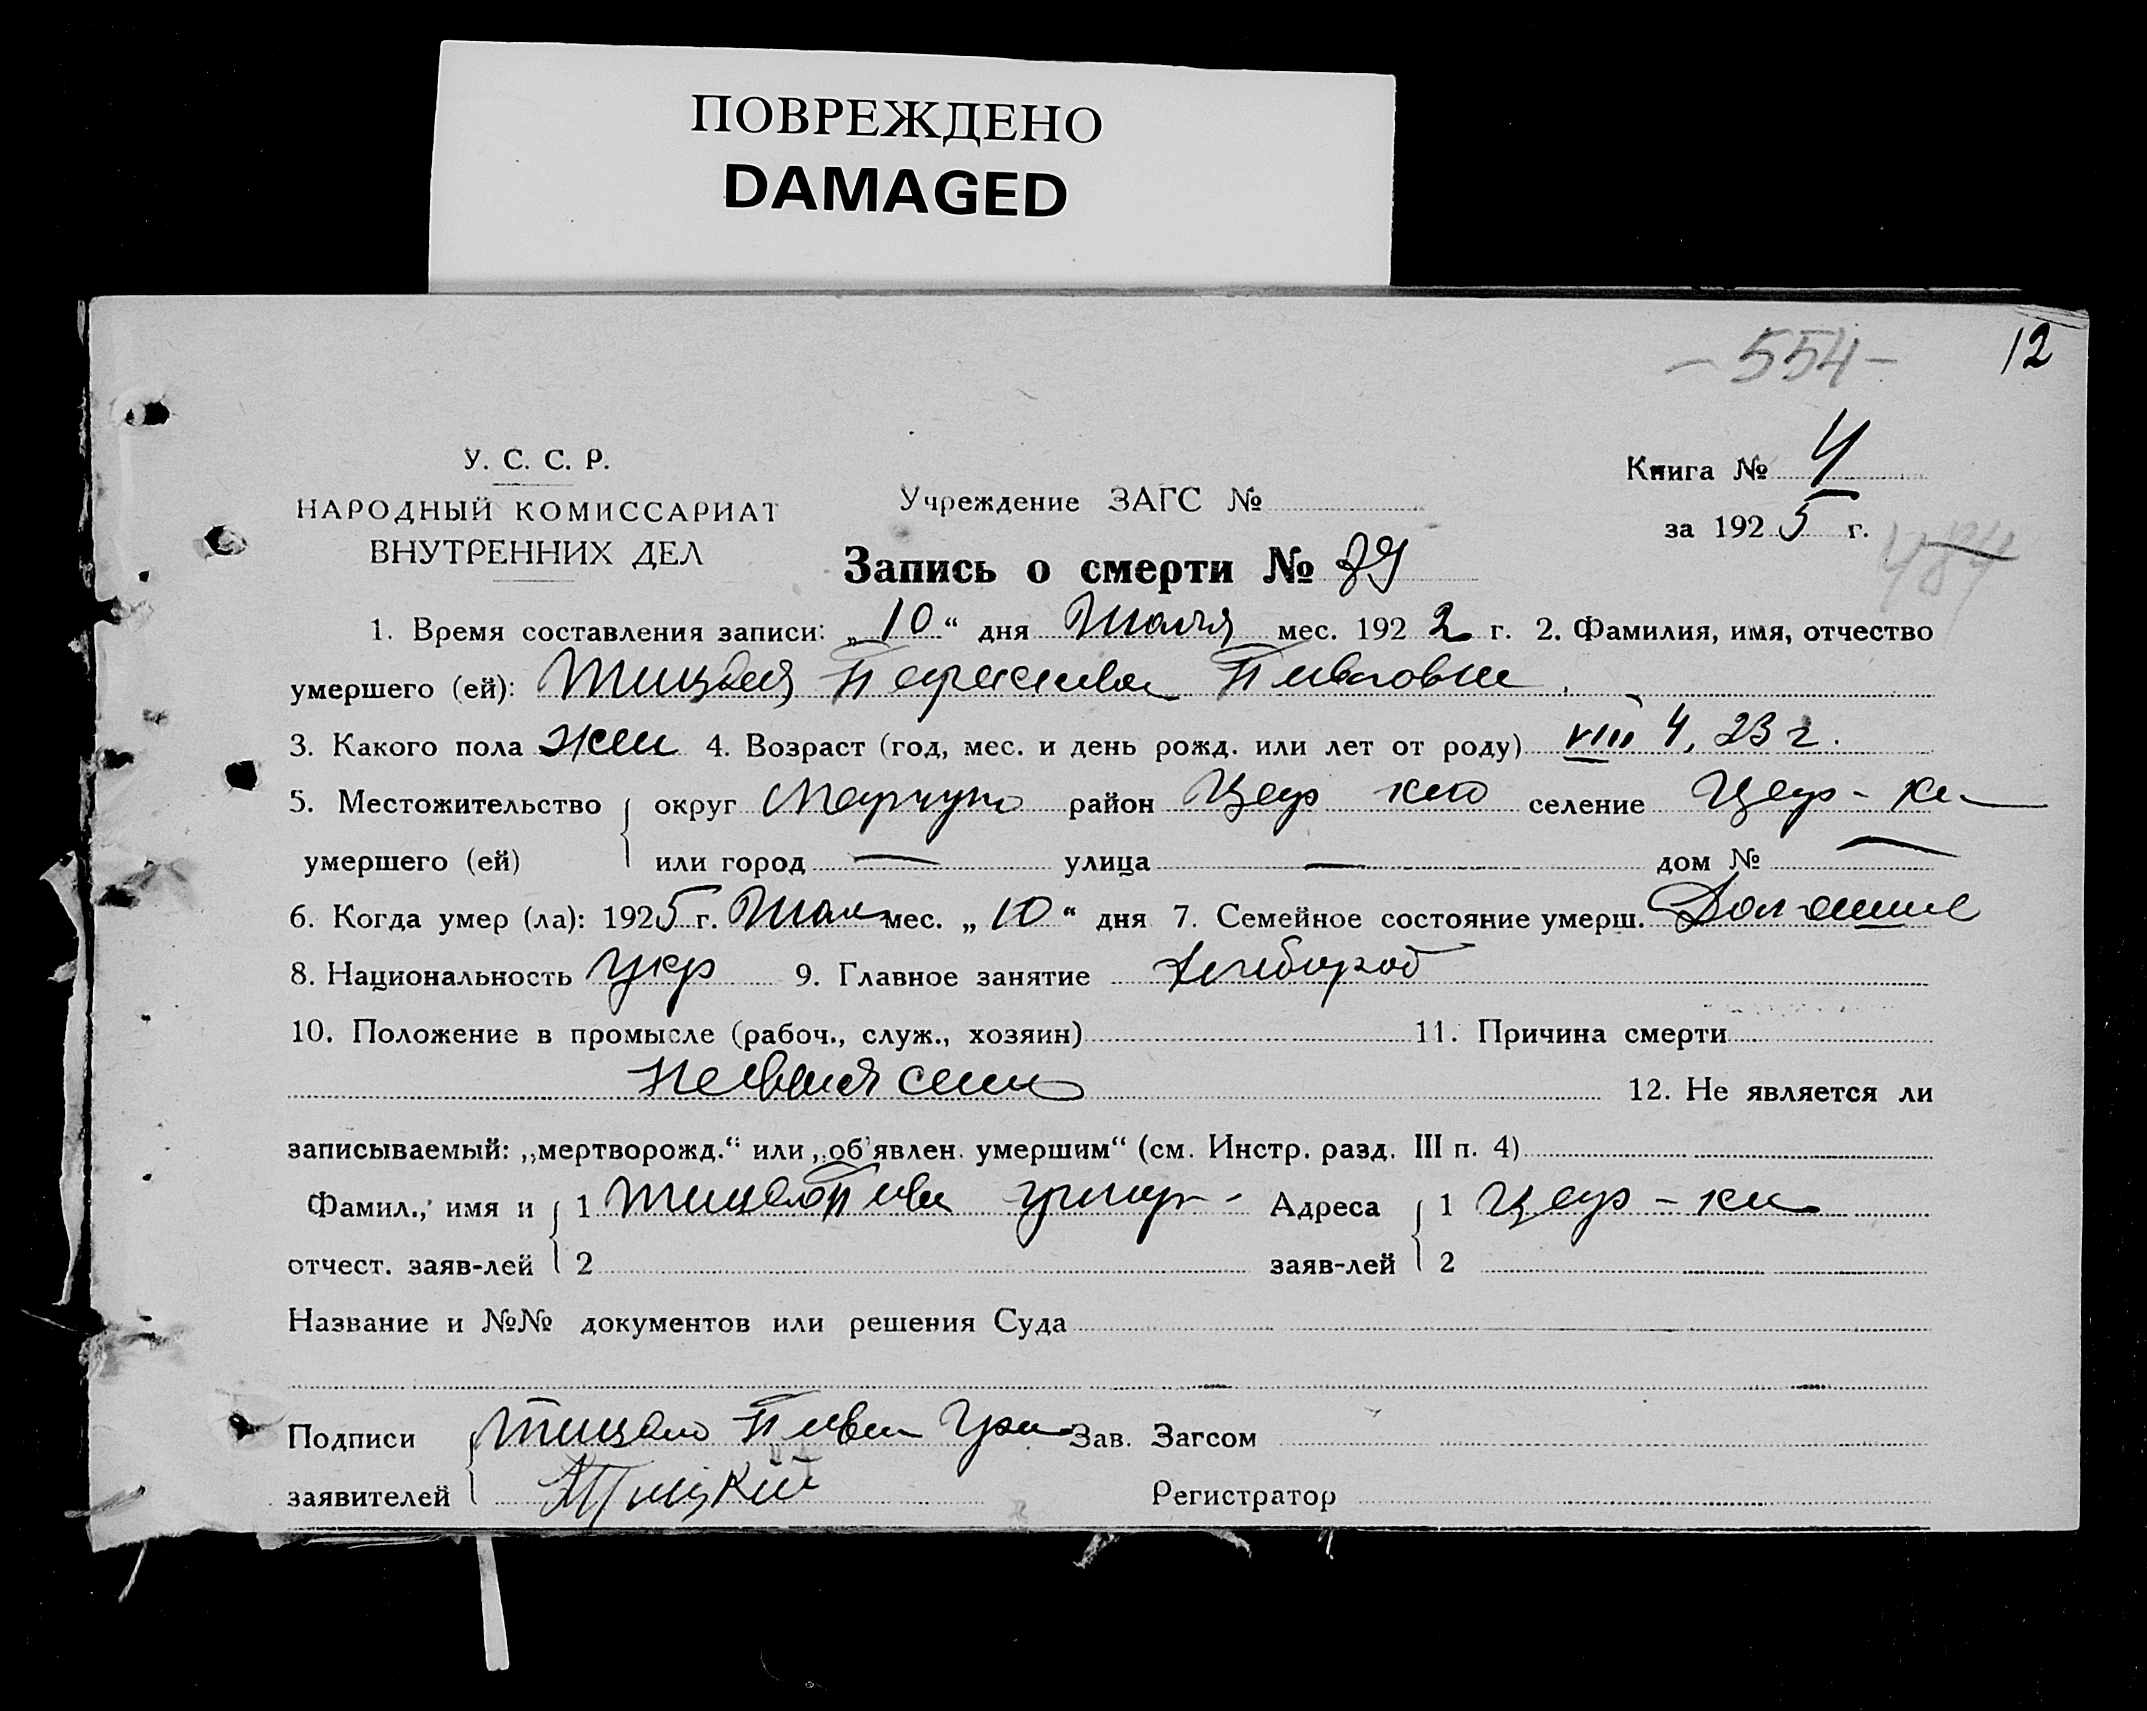 ПОВРЕЖДЕНО
DAMAGED
- 554 -
12
У. С. С. Р.
НАРОДНЫЙ КОМИССАРИАТ
ВНУТРЕННИХ ДЕЛ
Учреждение ЗАГС №
Книга № 4
за 1925 г.
484
Запись о смерти № 39
1. Время составления записи: „10“ дня Июля мес. 1922 г. 2. Фамилия, имя, отчество
умершего (ей): Тицкая Параскева Павловна
3. Какого пола жен 4. Возраст (год, мес. и день рожд. или лет от роду) VIII 4, 23 г.
5. Местожительство округ район Цар кон селение Цар - кон
умершего (ей) или город — улица — дом № —
6. Когда умер (ла): 1925 г. Июля мес. „10“ дня 7. Семейное состояние умерш.
8. Национальность Укр 9. Главное занятие Хлебороб
10. Положение в промысле (рабоч., служ., хозяин) 11. Причина смерти
12. Не является ли
записываемый: „мертворожд.“ или „об'явлен. умершим“ (см. Инстр. разд. III п. 4)
Фамил., имя и 1 Адреса 1 Цар - кон
отчест. заяв-лей 2 заяв-лей 2
Название и №№ документов или решения Суда
Подписи Зав. Загсом
заявителей Тицкий Регистратор